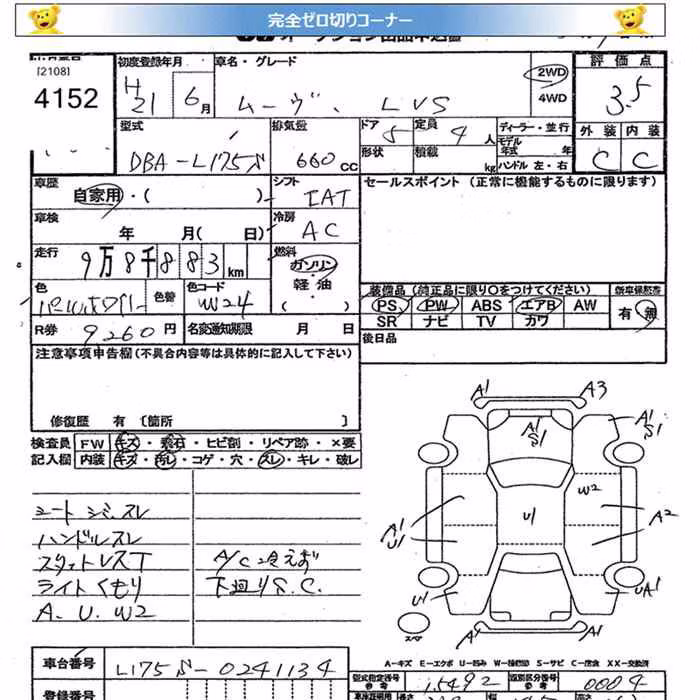 完全ゼロ切りコーナー
[2108]
4152
初度登録年月
H21年 6月
車名・グレード
ムーヴ、 LVS
2WD
4WD
評価点
3.5
外装 内装
C C
型式
DBA-L175S
排気量
660cc
ドア 5
形状
定員 4人
積載 kg
ディーラー・並行
モデル年式 年
ハンドル 左・右
車歴
自家用・( )
シフト
IAT
セールスポイント (正常に機能するものに限ります)
車検
年 月( 日)
冷房
AC
走行
9万8千883km
燃料
ガソリン・軽油・( )
色
色替
色コード
W24
装備品 (純正品に限り○をつけてください)
PS PW ABS エアB AW
SR ナビ TV カワ
新車保証書
有・無
R券 9260円
名変通知期限 月 日
後日品
注意事項申告欄(不具合内容等は具体的に記入して下さい)
修復歴 有 〔箇所 〕
検査員記入欄
FW キズ・飛石・ヒビ割・リペア跡・×要
内装 キズ・汚れ・コゲ・穴・スレ・キレ・破レ
シートシミ、スレ
ハンドルスレ
スタットレスT
ライトくもり
A.U.W2
A/C冷えず
下廻りS.C.
A1 A3
A1 S1
A1 S1
W2
A1 U1
U1
A2
U1
UA1
A1 A1
スペア
A-キズ E-エクボ U-凹み W-補修跡 S-サビ C-腐食 XX-交換済
車台番号
L175S-0241134
型式指定番号 参考
15492
類別区分番号 参考
0004
登録番号